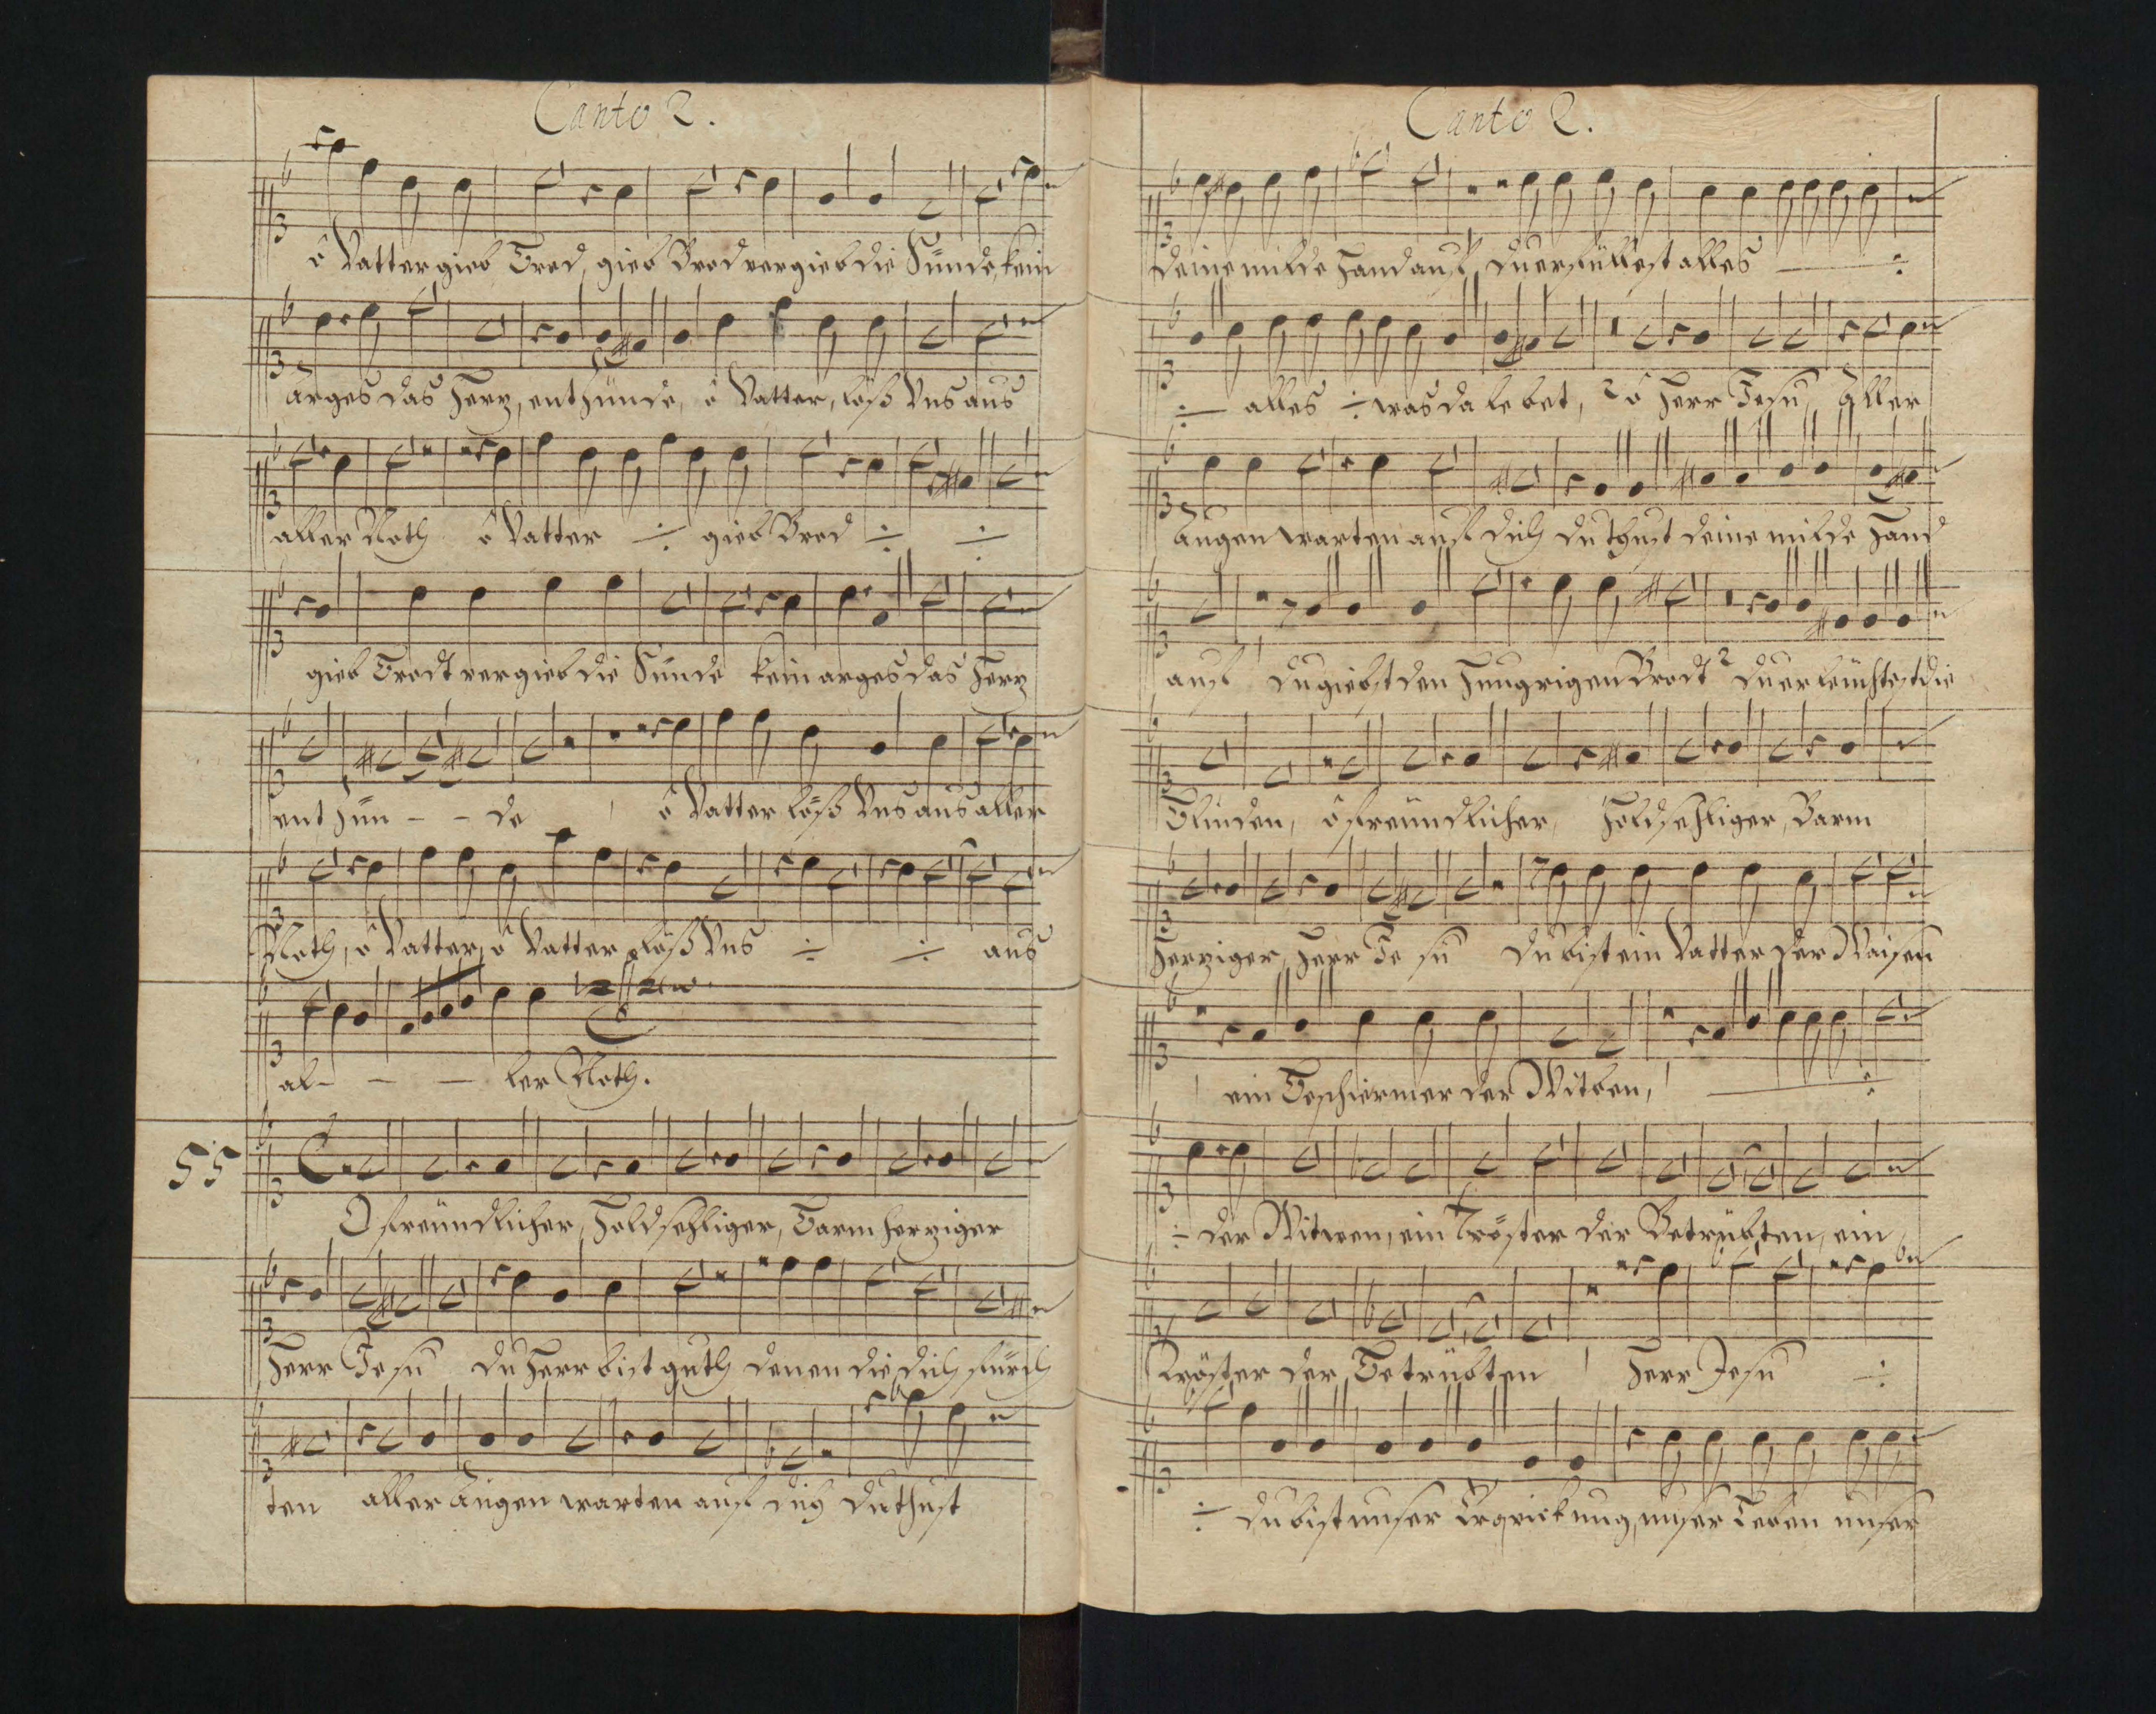 Canto 2.
ô Vatter gieb Brod, gieb Brod vergieb die Sünde, kein
arges das Herz, enthzünde, ô Vatter, löß Vns aus
aller Noth ô Vatter ÷ gieb Brod ÷ ÷
gieb Brodt vergieb die Sünde kein arges das Herz
ent zün - - de ô Vatter löß Vns aus aller
Noth, ô Vatter, ô Vatter löß Vns ÷ ÷ aus
al - - - ler Noth.
55
O freündlicher, Holdsehliger, Barmherziger
Herr Jesu du Herr bist guth denen die dich fürch
ten aller Augen warten auf dich du thust
Canto 2.
deine milde Hand auf, du erfüllest alles ÷
÷ alles ÷ was da lebet, ô Herr Jesu, Aller
Augen warten auf dich du thust deine milde Hand
auf du giebst den Hungrigen Brodt du erleüchtest die
Blinden, ô freündlicher, Holdsehliger, Barm
Herziger, Herr Je su du bist ein Vatter der Waisen
ein Beschiermer der Witben, ÷
÷ der Witwen, ein Tröster der Betrübten, ein
Tröster der Betrübten Herr Jesu ÷
÷ du bist unser Erqvickung, unser Leben unser